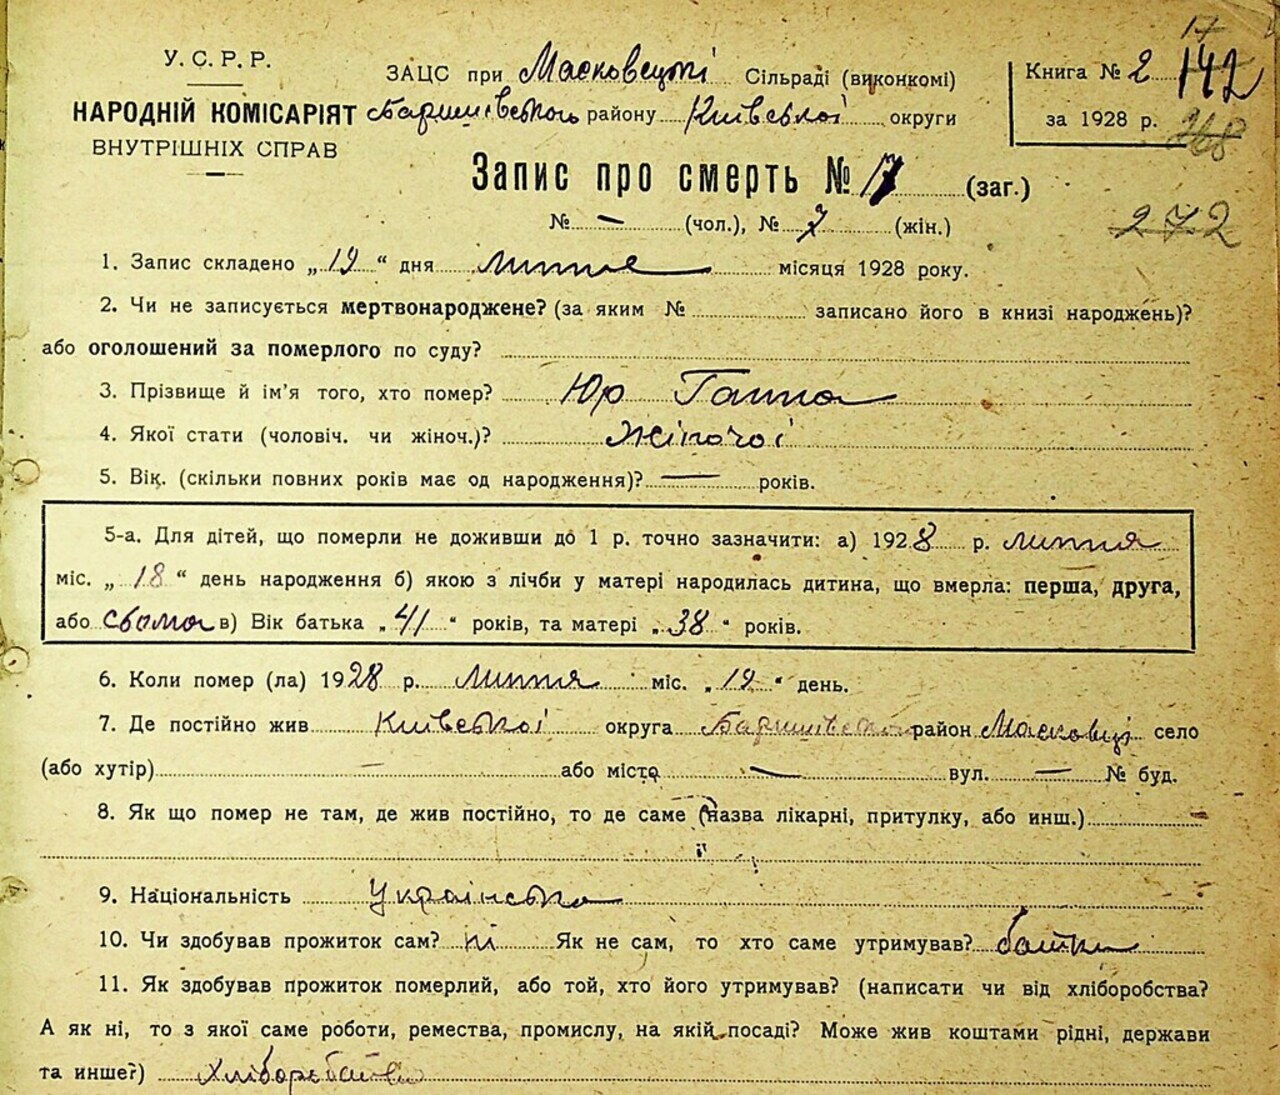 17
У. С. Р. Р.
НАРОДНІЙ КОМІСАРІЯТ
ВНУТРІШНІХ СПРАВ
ЗАЦС при Масковецькі Сільраді (виконкомі)
Баришівського району Київської округи
Книга № 2 142
за 1928 р. 268
Запис про смерть № 17 (заг.)
№ — (чол.), № 7 (жін.)
272
1. Запис складено „19“ дня липня місяця 1928 року.
2. Чи не записується мертвонароджене? (за яким № записано його в книзі народжень)?
або оголошений за померлого по суду?
3. Прізвище й ім'я того, хто помер? Юр Ганна
4. Якої стати (чоловіч. чи жіноч.)? Жіночої
5. Вік. (скільки повних років має од народження)? — років.
5-а. Для дітей, що померли не доживши до 1 р. точно зазначити: а) 1928 р. липня
міс. „18“ день народження б) якою з лічби у матері народилась дитина, що вмерла: перша, друга,
або сьома в) Вік батька „41“ років, та матері „38“ років.
6. Коли помер (ла) 1928 р. липня міс. „19“ день.
7. Де постійно жив Київської округа Баришівський район Масковці село
(або хутір) — або місто — вул. — № буд.
8. Як що помер не там, де жив постійно, то де саме (назва лікарні, притулку, або инш.)
9. Національність Українська
10. Чи здобував прожиток сам? ні Як не сам, то хто саме утримував? батьки
11. Як здобував прожиток померлий, або той, хто його утримував? (написати чи від хліборобства?
А як ні, то з якої саме роботи, ремества, промислу, на якій посаді? Може жив коштами рідні, держави
та инше?) Хліборобство